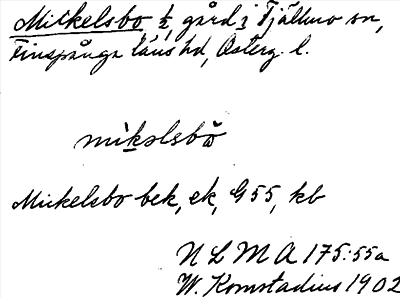 Mickelsbo ½ gård i Tjällmo sn,
Finspånga läns hd, Österg. l.
mìkəlsbò
Mickelsbo bek, ek, G55, kb
NLMA 175:55a
W. Komstadius 1902